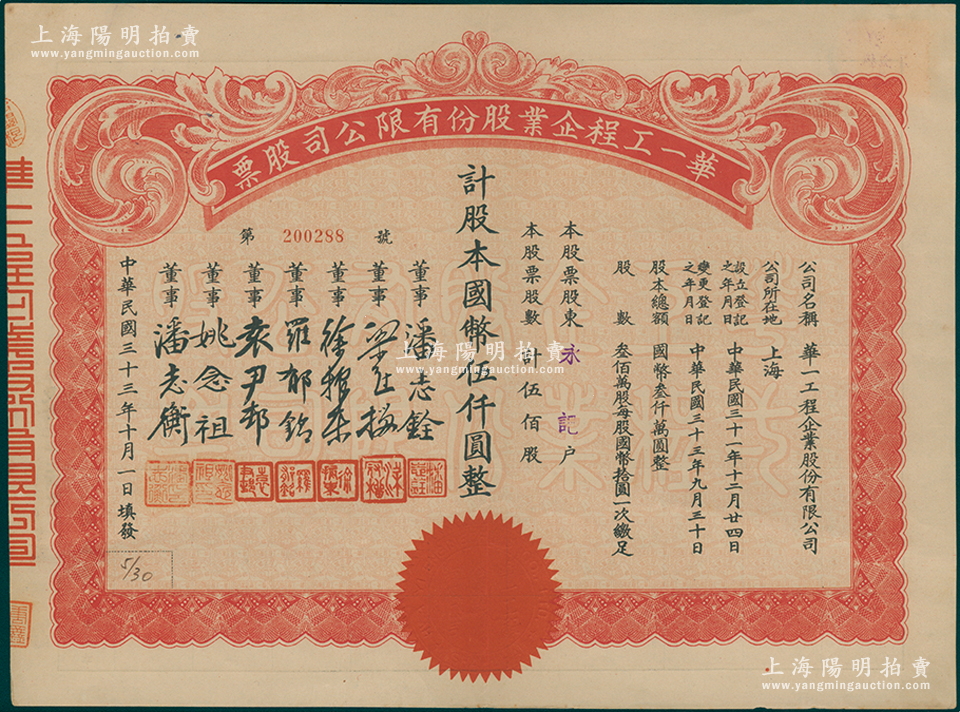 上海陽明拍賣
www.yangmingauction.com
華一工程企業股份有限公司股票
公司名稱 華一工程企業股份有限公司
公司所在地 上海
設立登記之年月日 中華民國三十一年十二月廿四日
變更登記之年月日 中華民國三十三年九月三十日
股本總額 國幣叁仟萬圓整
股數 叁佰萬股每股國幣拾圓一次繳足
本股票股東 永記 户
本股票股數 計伍佰股
計股本國幣伍仟圓整
第 200288 號
董事 潘志銓
董事
董事
董事 羅郁銘
董事 袁尹邨
董事 姚念祖
董事 潘志衡
中華民國三十三年十月一日填發
5/30
上海陽明拍賣
www.yangmingauction.com
上海陽明拍賣
www.yangmingauction.com